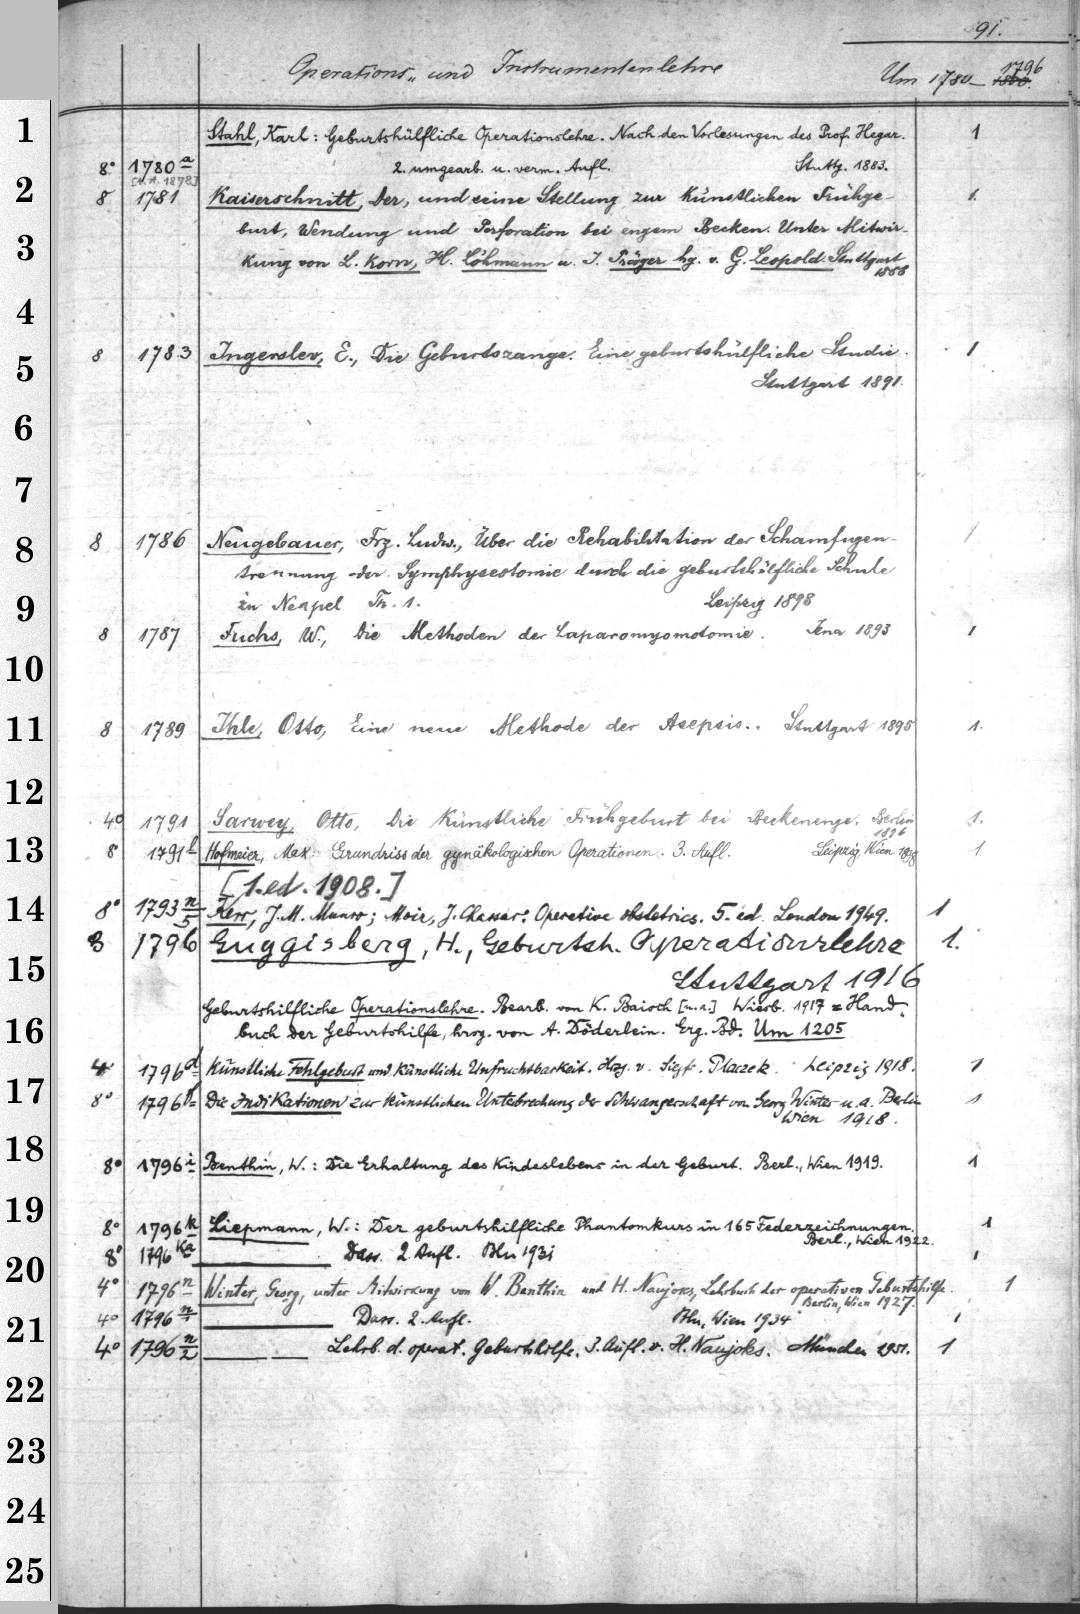 91.
Operations- und Instrumentenlehre Um 1780- 1796
1800.
1 Stahl, Karl: Geburtshülfliche Operationslehre. Nach den Vorlesungen des Prof. Hegar. 1
8° 1780 a 2. umgearb. u. verm. Aufl. Stuttg. 1883.
[1.A. 1878]
2 8 1781 Kaiserschnitt, Der, und seine Stellung zur künstlichen Frühge- 1.
burt, Wendung und Perforation bei engem Becken. Unter Mitwir-
3 kung von L. Korn, H. Löhmann u. J. Präger hg. v. G. Leopold. Stuttgart
1888
4
5 8 1783 Ingerslev, E., Die Geburtszange. Eine geburtshülfliche Studie. 1
Stuttgart 1891.
6
7
8 8 1786 Neugebauer, Frz. Ludw., Über die Rehabilitation der Schamfugen- 1
trennung oder Symphyseotomie durch die geburtshülfliche Schule
9 zu Neapel Th. 1. Leipzig 1898
8 1787 Fuchs, W., Die Methoden der Laparomyomotomie. Jena 1893 1
10
11 8 1789 Ihle, Otto, Eine neue Methode der Asepsis.. Stuttgart 1895 1.
12
4° 1791 Sarwey, Otto, Die künstliche Frühgeburt bei Beckenenge. Berlin 1.
1896
13 8° 1791 l Hofmeier, Max: Grundriss der gynäkologischen Operationen. 3. Aufl. Leipzig, Wien 1898 1
[1.ed. 1908.]
14 8° 1793 n/5 Kerr, J. M. Munro; Moir, J. Chassar: Operative obstetrics. 5. ed. London 1949. 1
8 1796 Guggisberg, H., Geburtsh. Operationslehre 1.
15 Stuttgart 1916
Geburtshilfliche Operationslehre. Bearb. von K. Baisch [u.a.] Wiesb. 1917 = Hand-
16 buch der Geburtshilfe, hrsg. von A. Döderlein. Erg. Bd. Um 1205
4 1796 d Künstliche Fehlgeburt und künstliche Unfruchtbarkeit. Hrsg. v. Siegfr. Placzek. Leipzig 1918. 1
17 8° 1796 Die Indikationen zur künstlichen Unterbrechung der Schwangerschaft von Georg Winter u. a. Berlin 1
Wien 1918.
18
8° 1796 i Benthin, W.: Die Erhaltung des Kindeslebens in der Geburt. Berl., Wien 1919. 1
19
8° 1796 k Liepmann, W.: Der geburtshilfliche Phantomkurs in 165 Federzeichnungen. 1
Berl., Wien 1922.
20 8° 1796 ka Dass. 2. Aufl. Bln 1931 1
4° 1796 n Winter, Georg, unter Mitwirkung von W. Benthin und H. Naujoks, Lehrbuch der operativen Geburtshilfe. 1
Berlin, Wien 1927.
21 4° 1796 n/1 Dass. 2. Aufl. Bln, Wien 1934 1
4° 1796 n/2 Lehrb. d. operat. Geburtshilfe. 3. Aufl. v. H. Naujoks. München 1951. 1
22
23
24
25